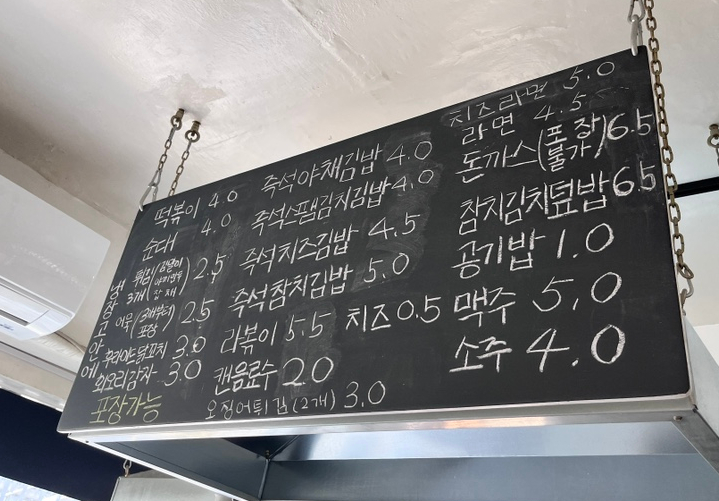 떡볶이 4.0
순대 4.0
튀김 3개 (김말이 야끼만두 잡채) 2.5
어묵 (3개부터 포장) 2.5
후라이드닭꼬치 3.0
회오리감자 3.0
포장가능
냉장고안에
즉석야채김밥 4.0
즉석스팸김치김밥 4.0
즉석치즈김밥 4.5
즉석참치김밥 5.0
라볶이 5.5 치즈 0.5
캔음료수 2.0
오징어튀김 (2개) 3.0
치즈라면 5.0
라면 4.5
돈까스 (포장불가) 6.5
참치김치덮밥 6.5
공기밥 1.0
맥주 5.0
소주 4.0